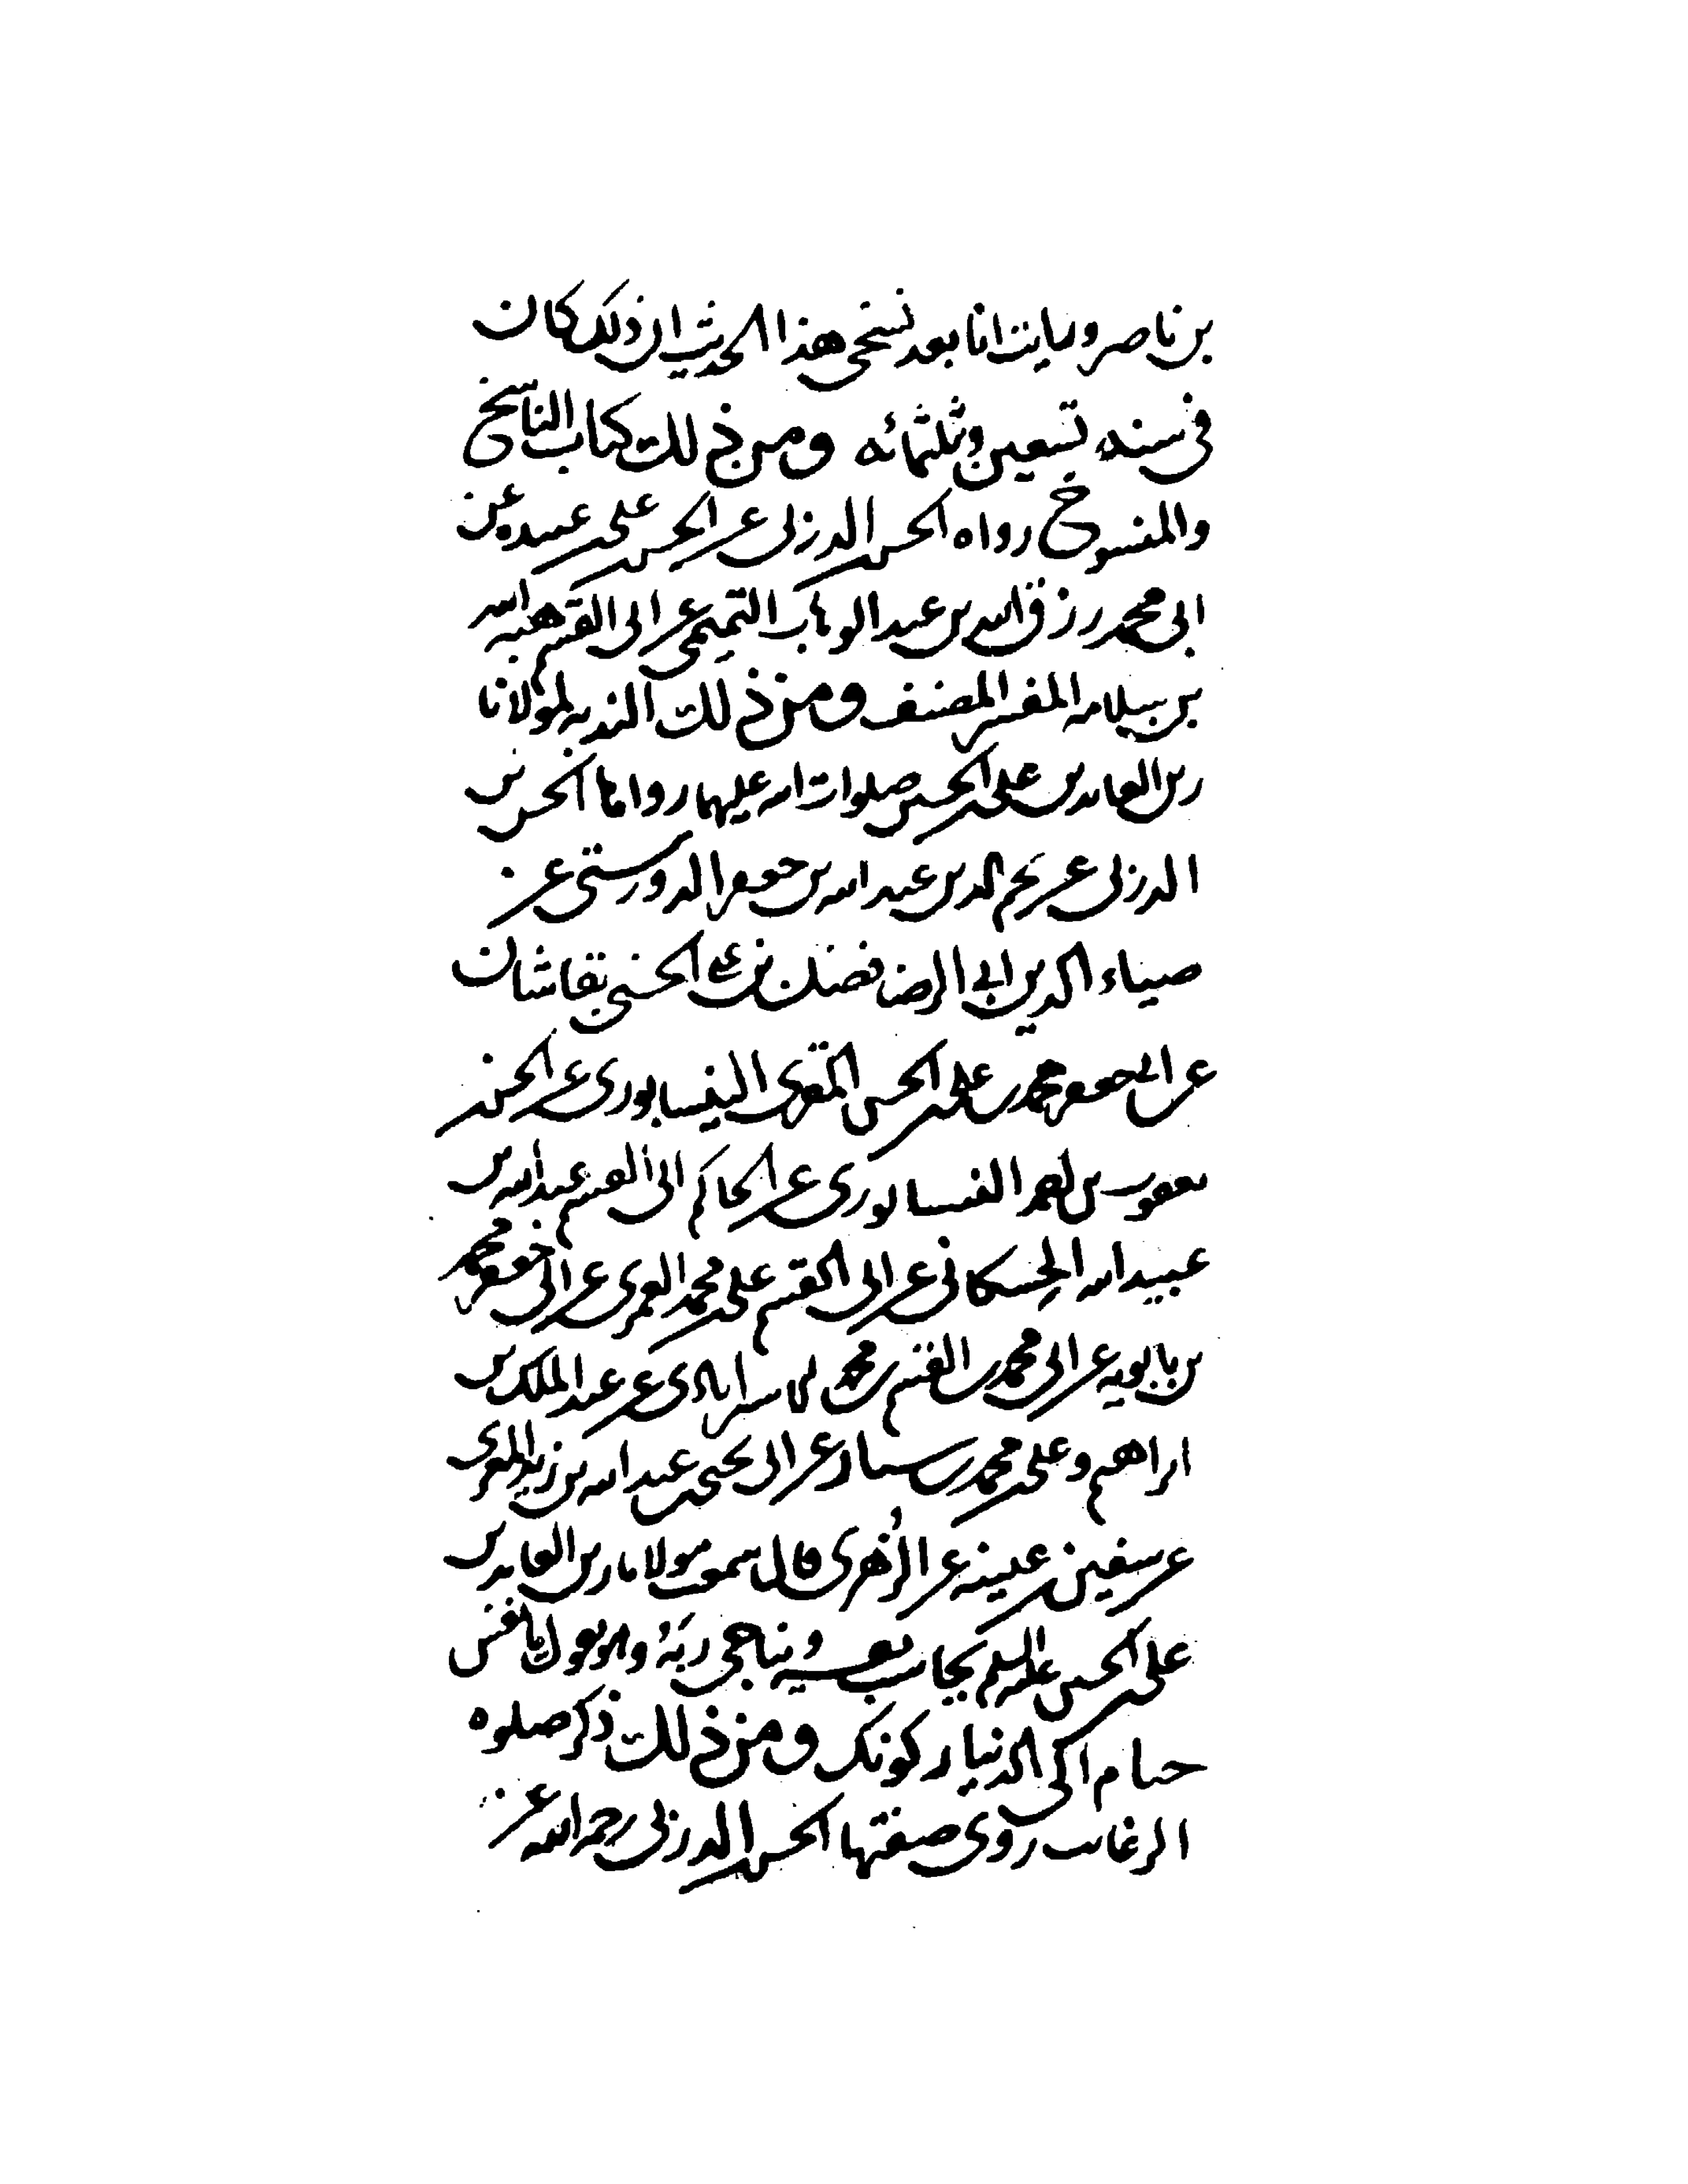 بن ناصر ورايت انا بعد نسخي هذا الحديث ان ذلك كان
في سنه تسعين وثلثمائه ومن ذلك كتاب الناسخ
والمنسوخ رواه الحسن الدربي عن الحسن بن علي بن عبيده عن
ابي محمد رزق الله بن عبد الوهاب التميمي عن ابي القسم هبه الله
بن سلامه المفسر المصنف ومن ذلك الندبه لمولانا
زين العابدين علي بن الحسين صلوات الله عليهما رواها الحسن بن
الدربي عن نجم الدين عبد الله بن جعفر الدورستي عن
ضياء الدين ابي الرضا فضل الله بن علي الحسني بقاشان
عن ابي جعفر محمد بن علي بن الحسن المقري النيسابوري عن الحسن بن
يعقوب بن احمد النيسابوري عن الحاكم ابي القسم عبد الله بن
عبيد الله الحسكاني عن ابي القسم علي بن محمد العمري عن ابي جعفر محمد
بن بابويه عن ابي محمد بن القسم بن محمد الاسترابادي عن عبد الملك بن
ابراهيم وعلي بن محمد بن سنان عن ابي يحيى بن عبد الله بن زيد المقري
عن سفين بن عيينه عن الزهري قال سمعت مولانا زين العابدين
علي بن الحسين عليه السلم يحاسب نفسه ويناجي ربه وهو يقول يا نفس
حتام الى الدنيا ركونك ومن ذلك ذكر صلوه
الرغائب روى صفتها الحسن بن الدربي رحمه الله عن